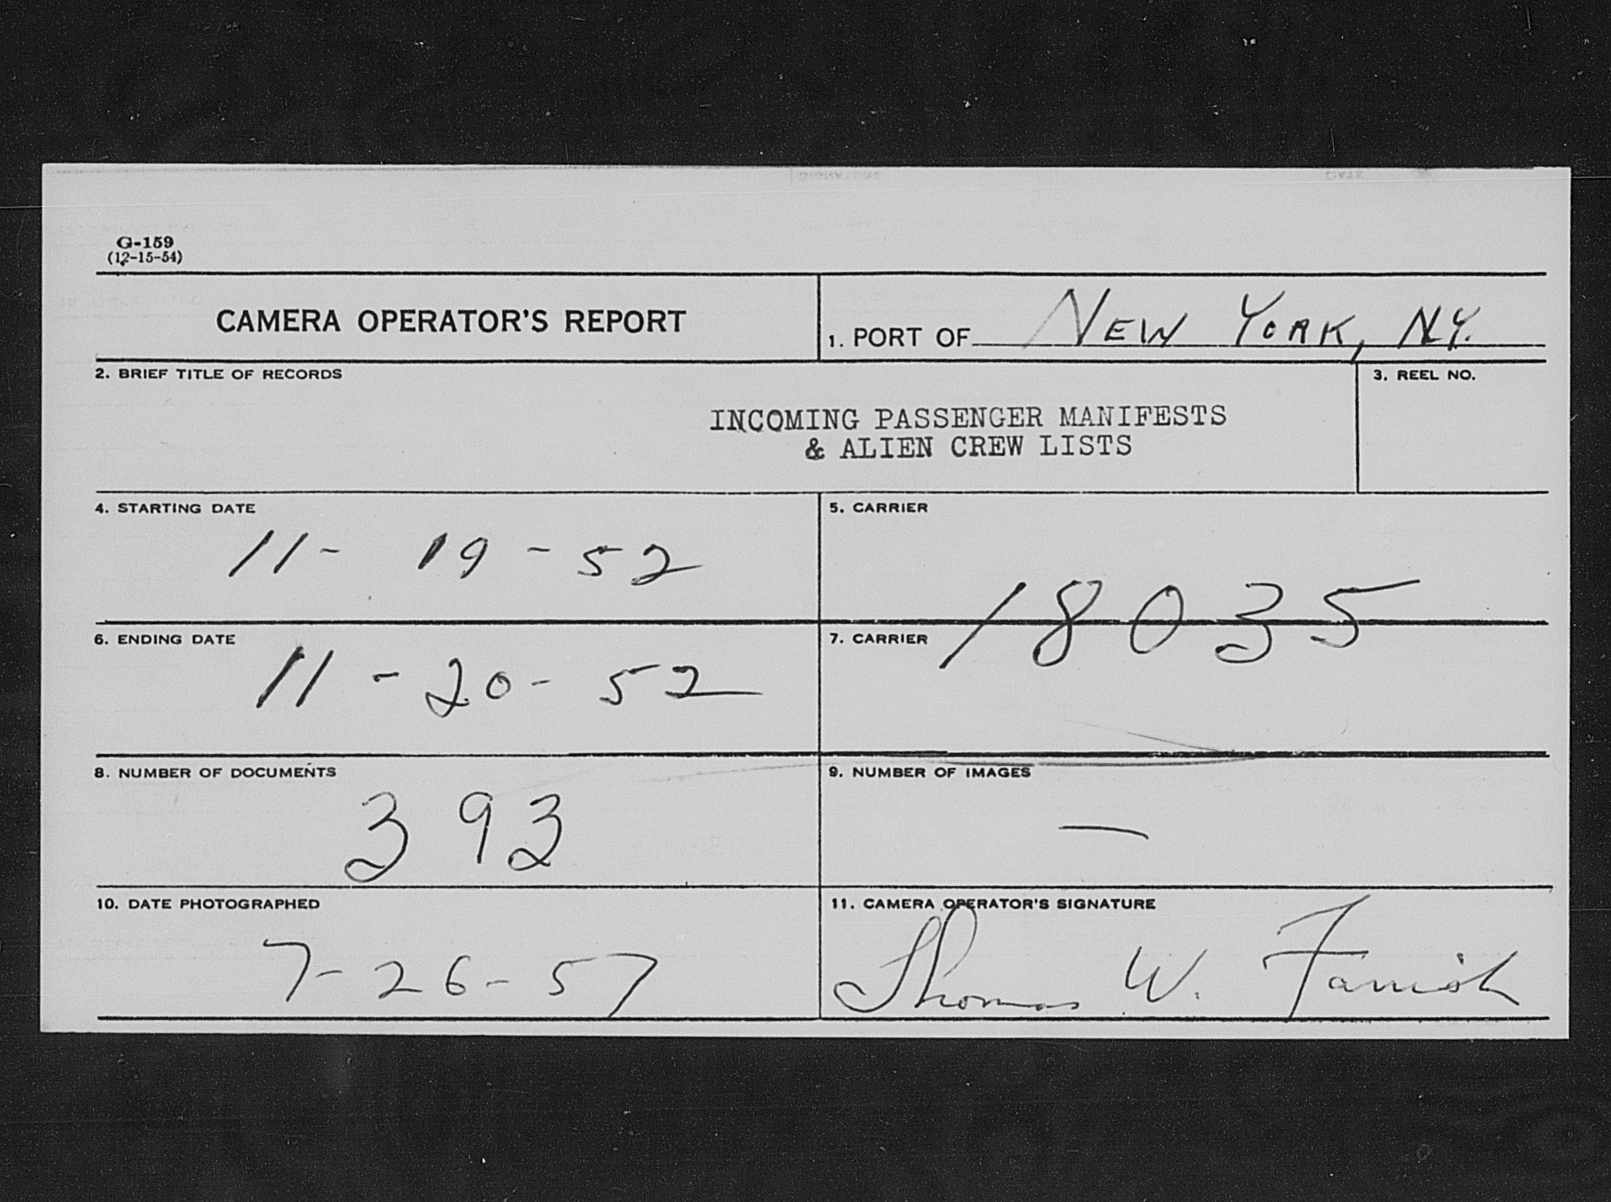 G-159
(12-15-54)
CAMERA OPERATOR'S REPORT
1. PORT OF NEW YORK, NY.
2. BRIEF TITLE OF RECORDS
3. REEL NO.
INCOMING PASSENGER MANIFESTS
& ALIEN CREW LISTS
4. STARTING DATE
11- 19-52
5. CARRIER
18035
6. ENDING DATE
11-20-52
7. CARRIER
8. NUMBER OF DOCUMENTS
393
9. NUMBER OF IMAGES
—
10. DATE PHOTOGRAPHED
7-26-57
11. CAMERA OPERATOR'S SIGNATURE
Thomas W.